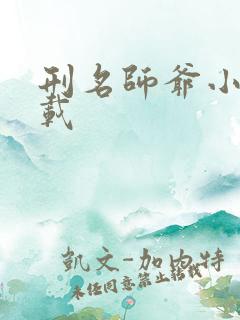 刑名師爺小
載
凱文-加內特
未經同意禁止轉載